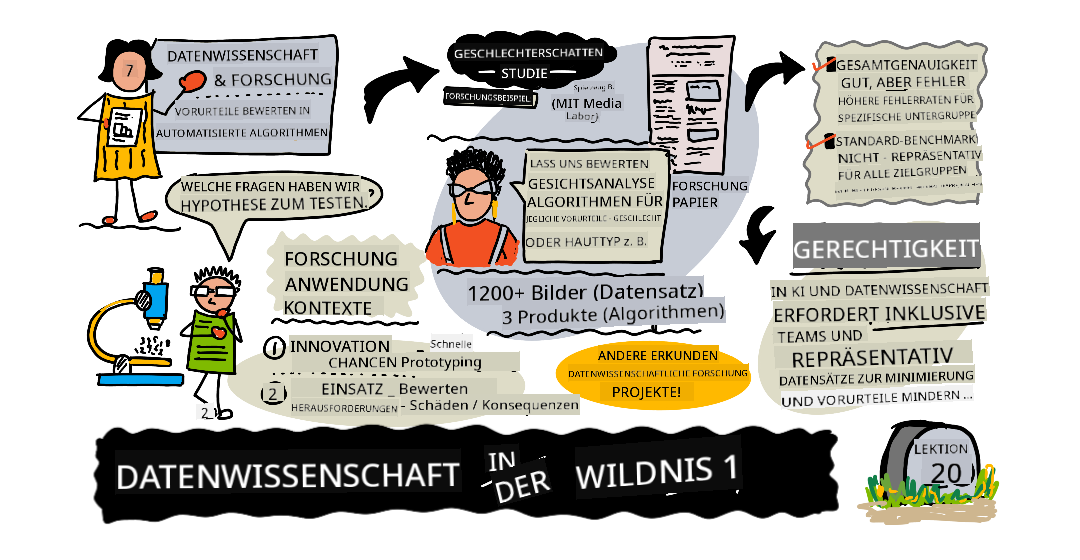 7
DATENWISSENSCHAFT
& FORSCHUNG
VORURTEILE BEWERTEN IN
AUTOMATISIERTE ALGORITHMEN
WELCHE FRAGEN HABEN WIR ?
HYPOTHESE ZUM TESTEN.
FORSCHUNG
ANWENDUNG
KONTEXTE
1 INNOVATION – Schnelle
CHANCEN Prototyping
2 EINSATZ _ Bewerten
HERAUSFORDERUNGEN - Schäden / Konsequenzen
2
GESCHLECHTERSCHATTEN
STUDIE
FORSCHUNGSBEISPIEL
(MIT Media
Labor)
LASS UNS BEWERTEN
GESICHTSANALYSE
ALGORITHMEN FÜR
JEGLICHE VORURTEILE - GESCHLECHT
ODER HAUTTYP z. B.
FORSCHUNG
PAPIER
1200+ Bilder (Datensatz)
3 Produkte (Algorithmen)
ANDERE ERKUNDEN
DATENWISSENSCHAFTLICHE FORSCHUNG
PROJEKTE!
GESAMTGENAUIGKEIT
GUT, ABER FEHLER
HÖHERE FEHLERRATEN FÜR
SPEZIFISCHE UNTERGRUPPE
STANDARD-BENCHMARK
NICHT - REPRÄSENTATIV
FÜR ALLE ZIELGRUPPEN
GERECHTIGKEIT
IN KI UND DATENWISSENSCHAFT
ERFORDERT INKLUSIVE
TEAMS UND
REPRÄSENTATIV
DATENSÄTZE ZUR MINIMIERUNG
UND VORURTEILE MINDERN ...
DATENWISSENSCHAFT IN DER WILDNIS 1
LEKTION
20